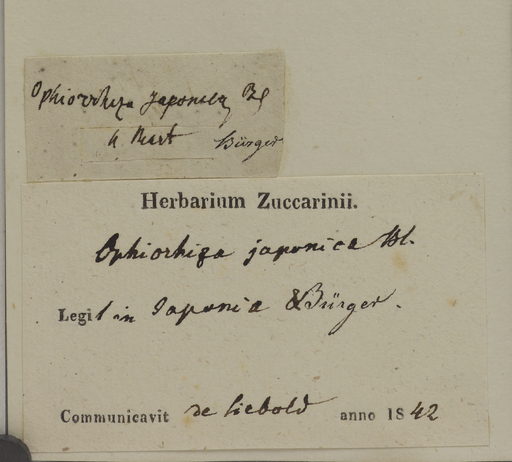 Ophiorrhiza japonica Bl
Bürger
Herbarium Zuccarinii.
Ophiorhiza japonica Bl.
Legit in Japonia & Bürger.
Communicavit de Siebold anno 1842